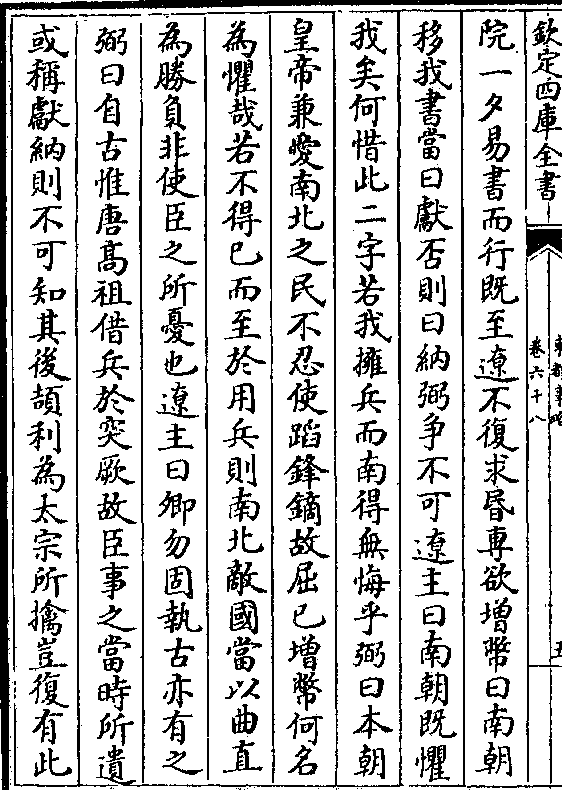 欽定四庫全書
卷六十八
院一夕易書而行既至遼不復求昏専欲增幣曰南朝
移我書當曰獻否則曰納弼争不可遼主曰南朝既懼
我矣何惜此二字若我擁兵而南得無悔乎弼曰本朝
皇帝兼愛南北之民不忍使蹈鋒鏑故屈已增幣何名
為懼哉若不得已而至於用兵則南北敵國當以曲直
為勝負非使臣之所憂也遼主曰卿勿固執古亦有之
弼曰自古惟唐髙祖借兵於突厥故臣事之當時所遺
或稱獻納則不可知其後頡利為太宗所擒豈復有此